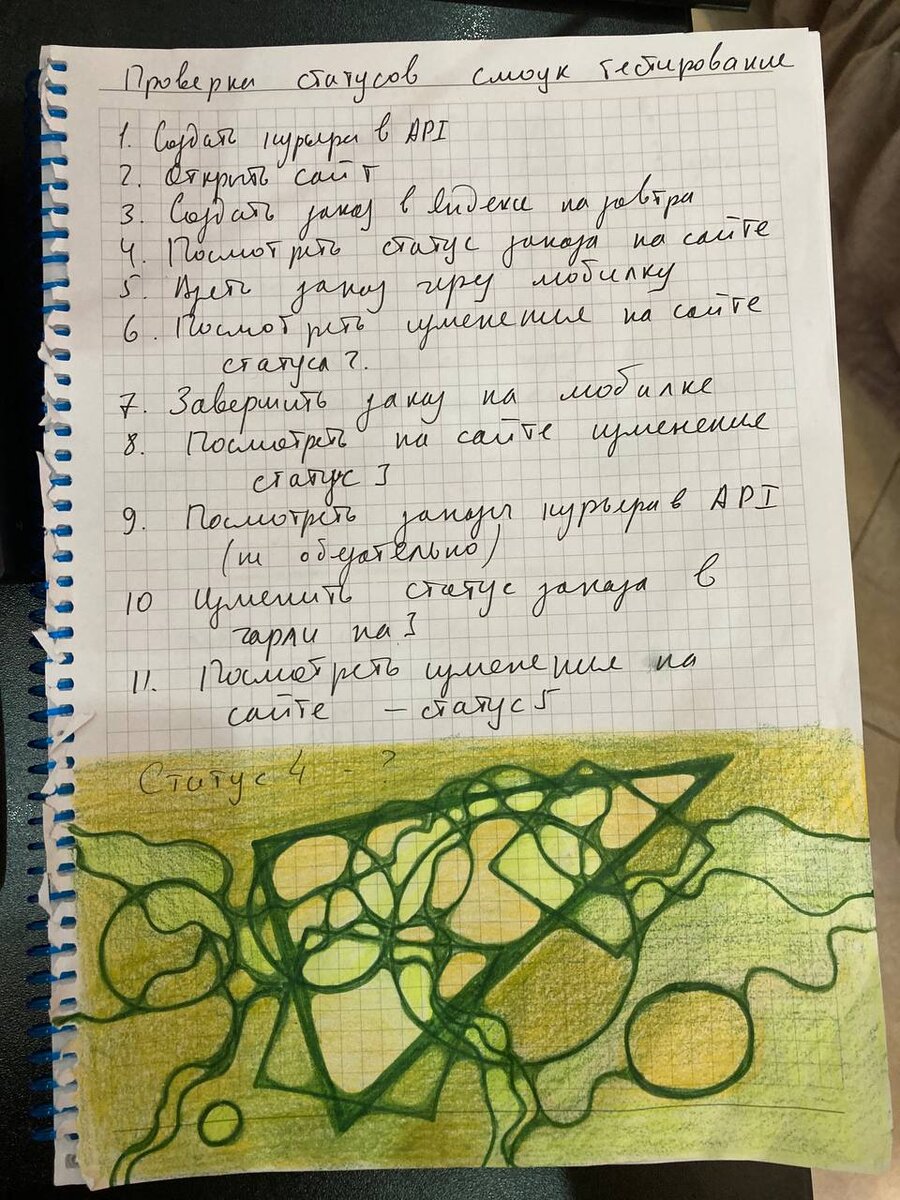 Проверка статусов смоук тестирование
1. Создать курьера в API
2. Открыть сайт
3. Создать заказ в Яндексе на завтра
4. Посмотреть статус заказа на сайте
5. Взять заказ через мобилку
6. Посмотреть изменения на сайте
статуса 2.
7. Завершить заказ на мобилке
8. Посмотреть на сайте изменения
статус 3
9. Посмотреть заказы курьера в API
(не обязательно)
10 Изменить статус заказа в
чарли на 3
11. Посмотреть изменения на
сайте – статус 5
Статус 4 - ?